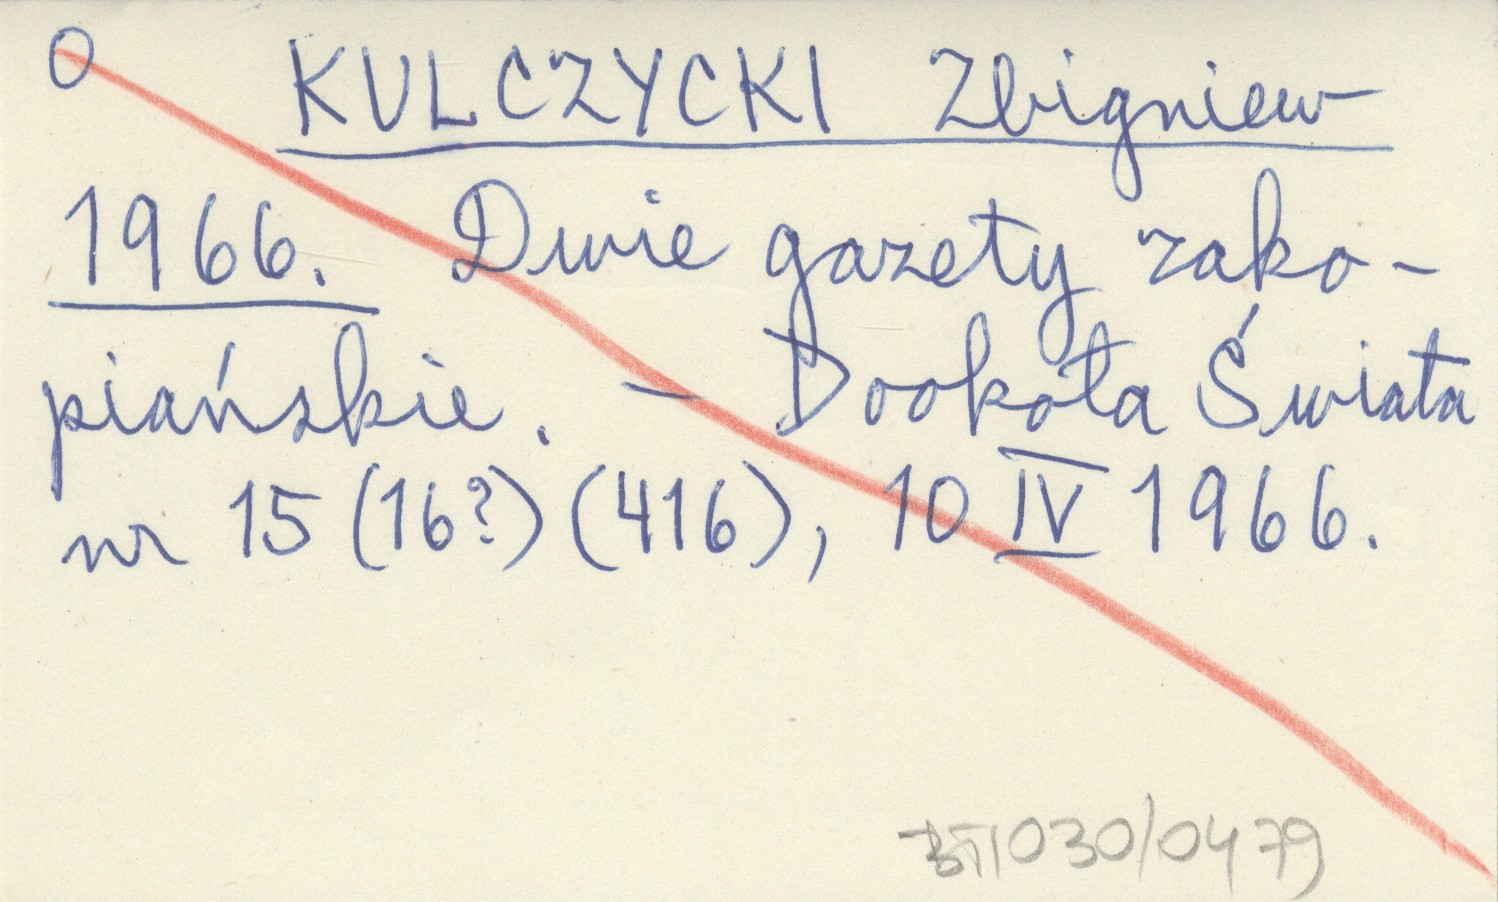 O KULCZYCKI Zbigniew
1966. Dwie gazety zako-
piańskie. – Dookoła Świata
nr 15 (16?) (416), 10 IV 1966.
BTT030/0479